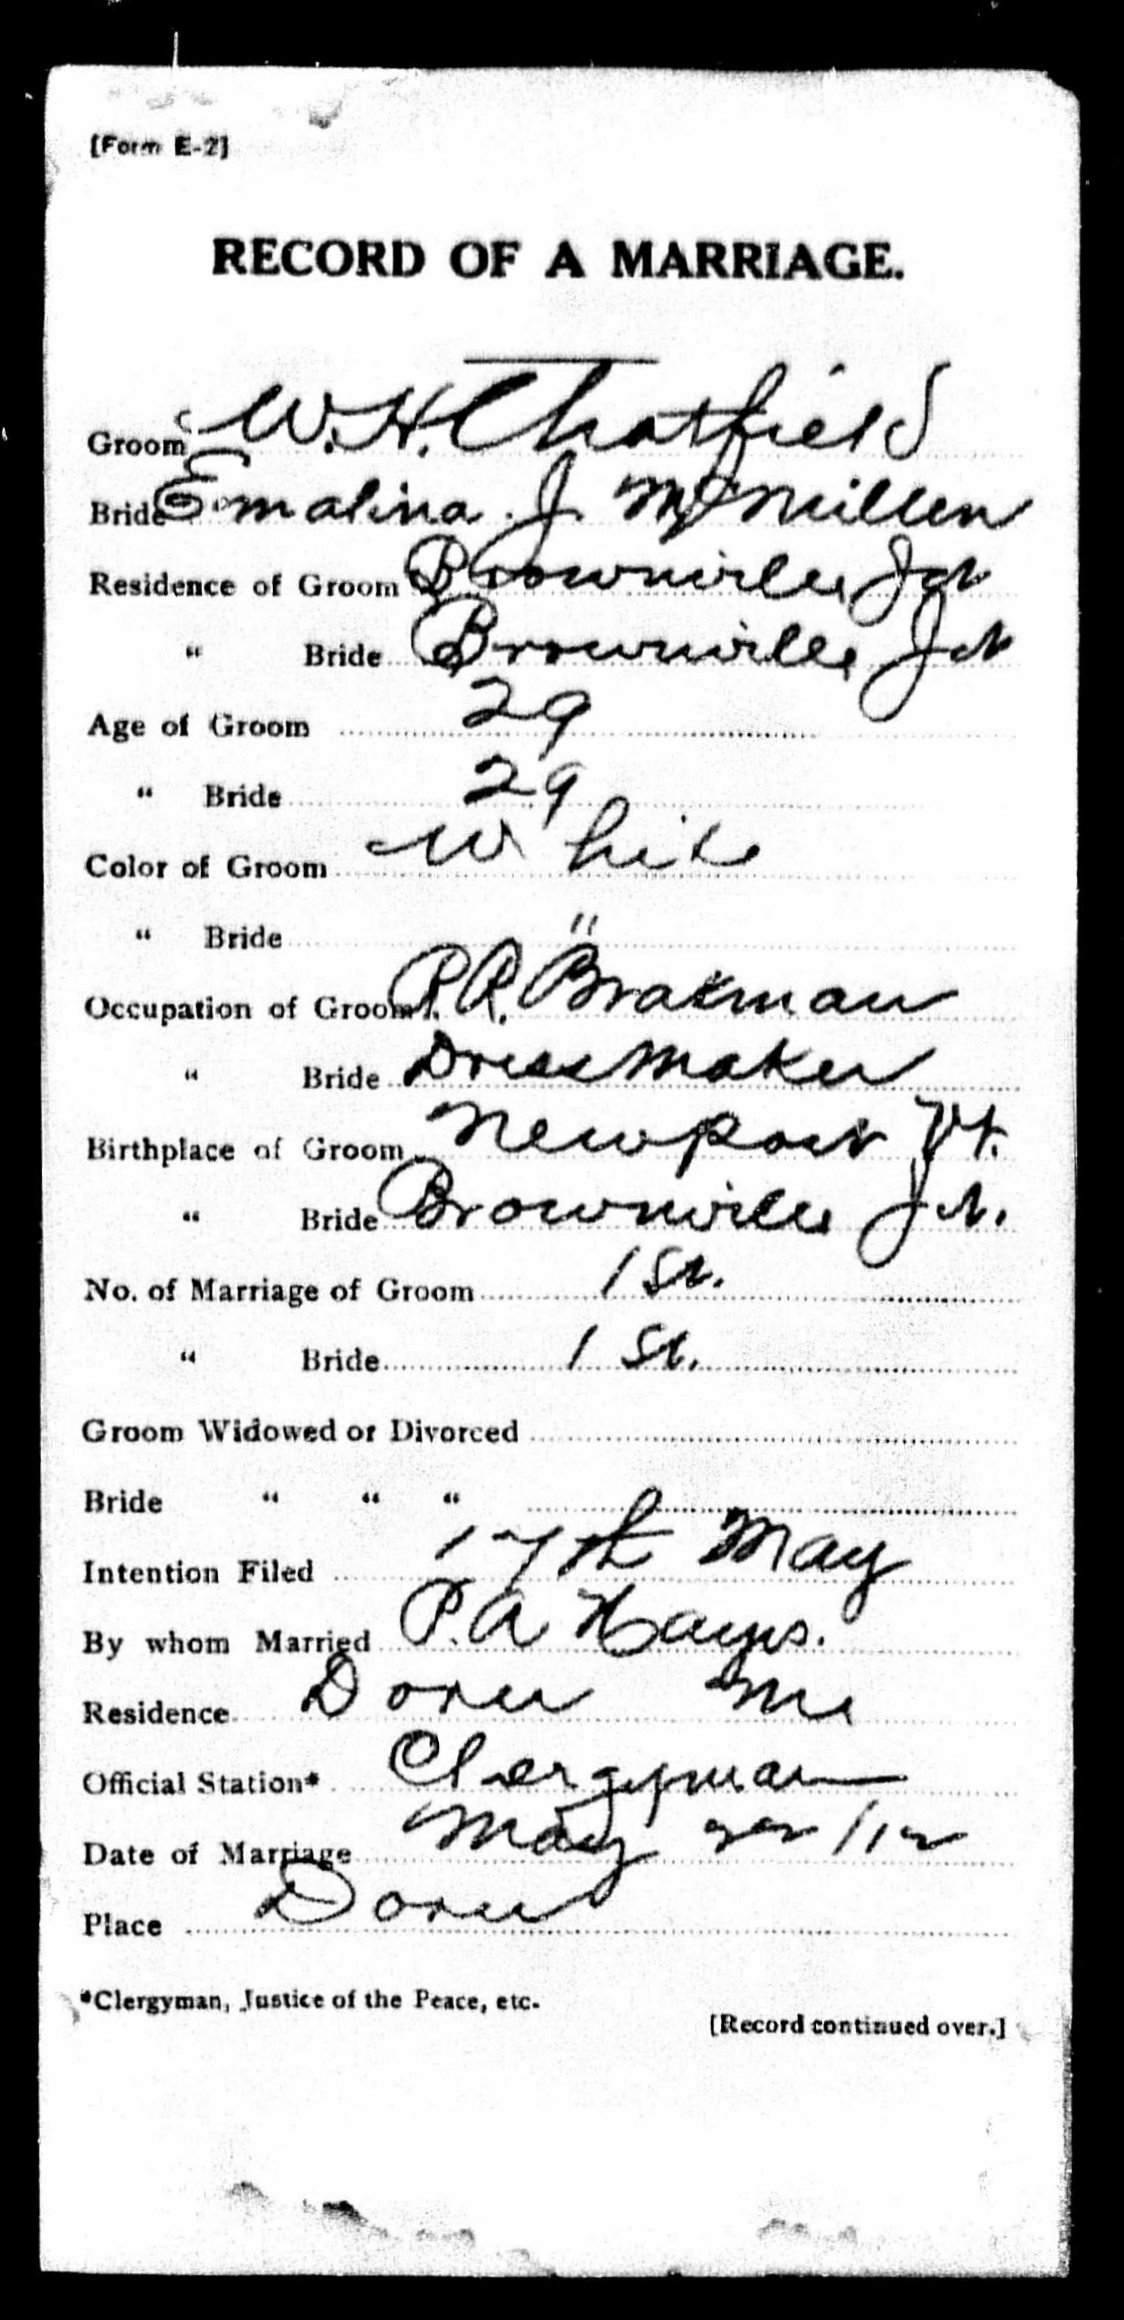 [Form E-2]
RECORD OF A MARRIAGE.
Groom W. H. Chatfield
Bride Emalina J. McMillen
Residence of Groom Brownville Jct
" Bride Brownville Jct
Age of Groom 29
" Bride 29
Color of Groom White
" Bride "
Occupation of Groom R.R. Brakman
" Bride Dressmaker
Birthplace of Groom Newport Vt.
" Bride Brownville Jct.
No. of Marriage of Groom 1st.
" Bride 1st.
Groom Widowed or Divorced
Bride " " "
Intention Filed 17th May
By whom Married P. A Hayes.
Residence Dover Me
Official Station* Clergyman
Date of Marriage May /12
Place Dover
*Clergyman, Justice of the Peace, etc.
[Record continued over.]